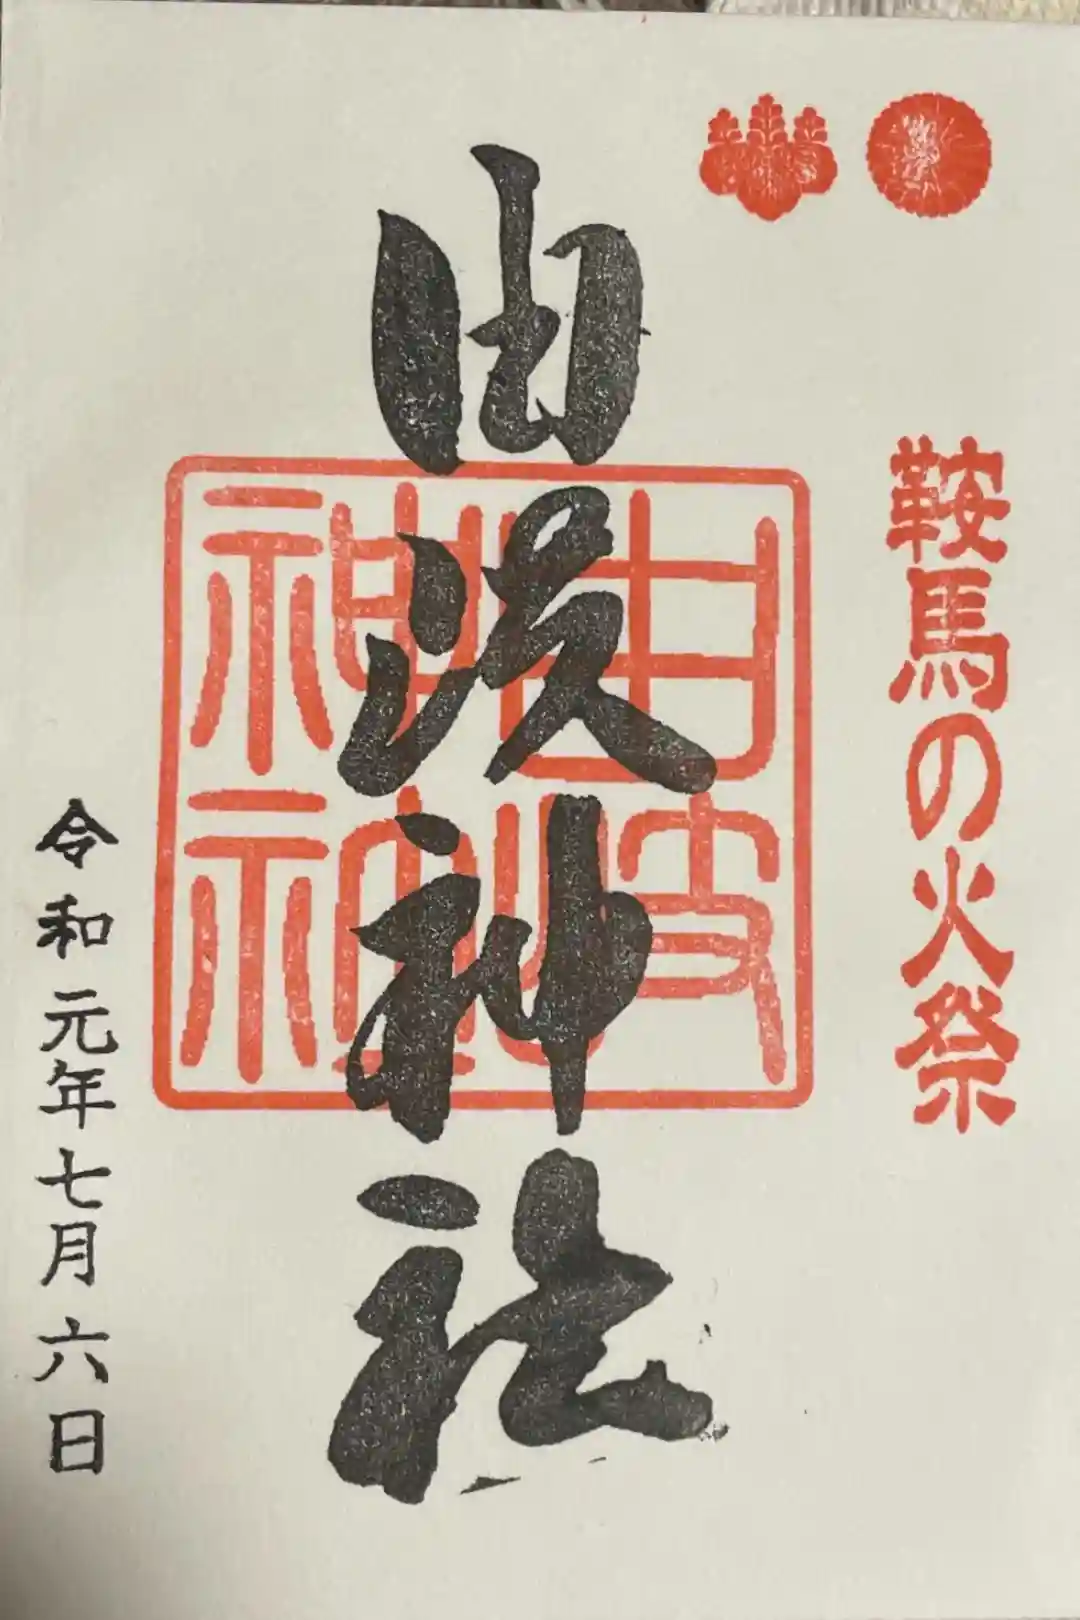 鞍馬の火祭
由岐神社
由岐神社
令和元年七月六日